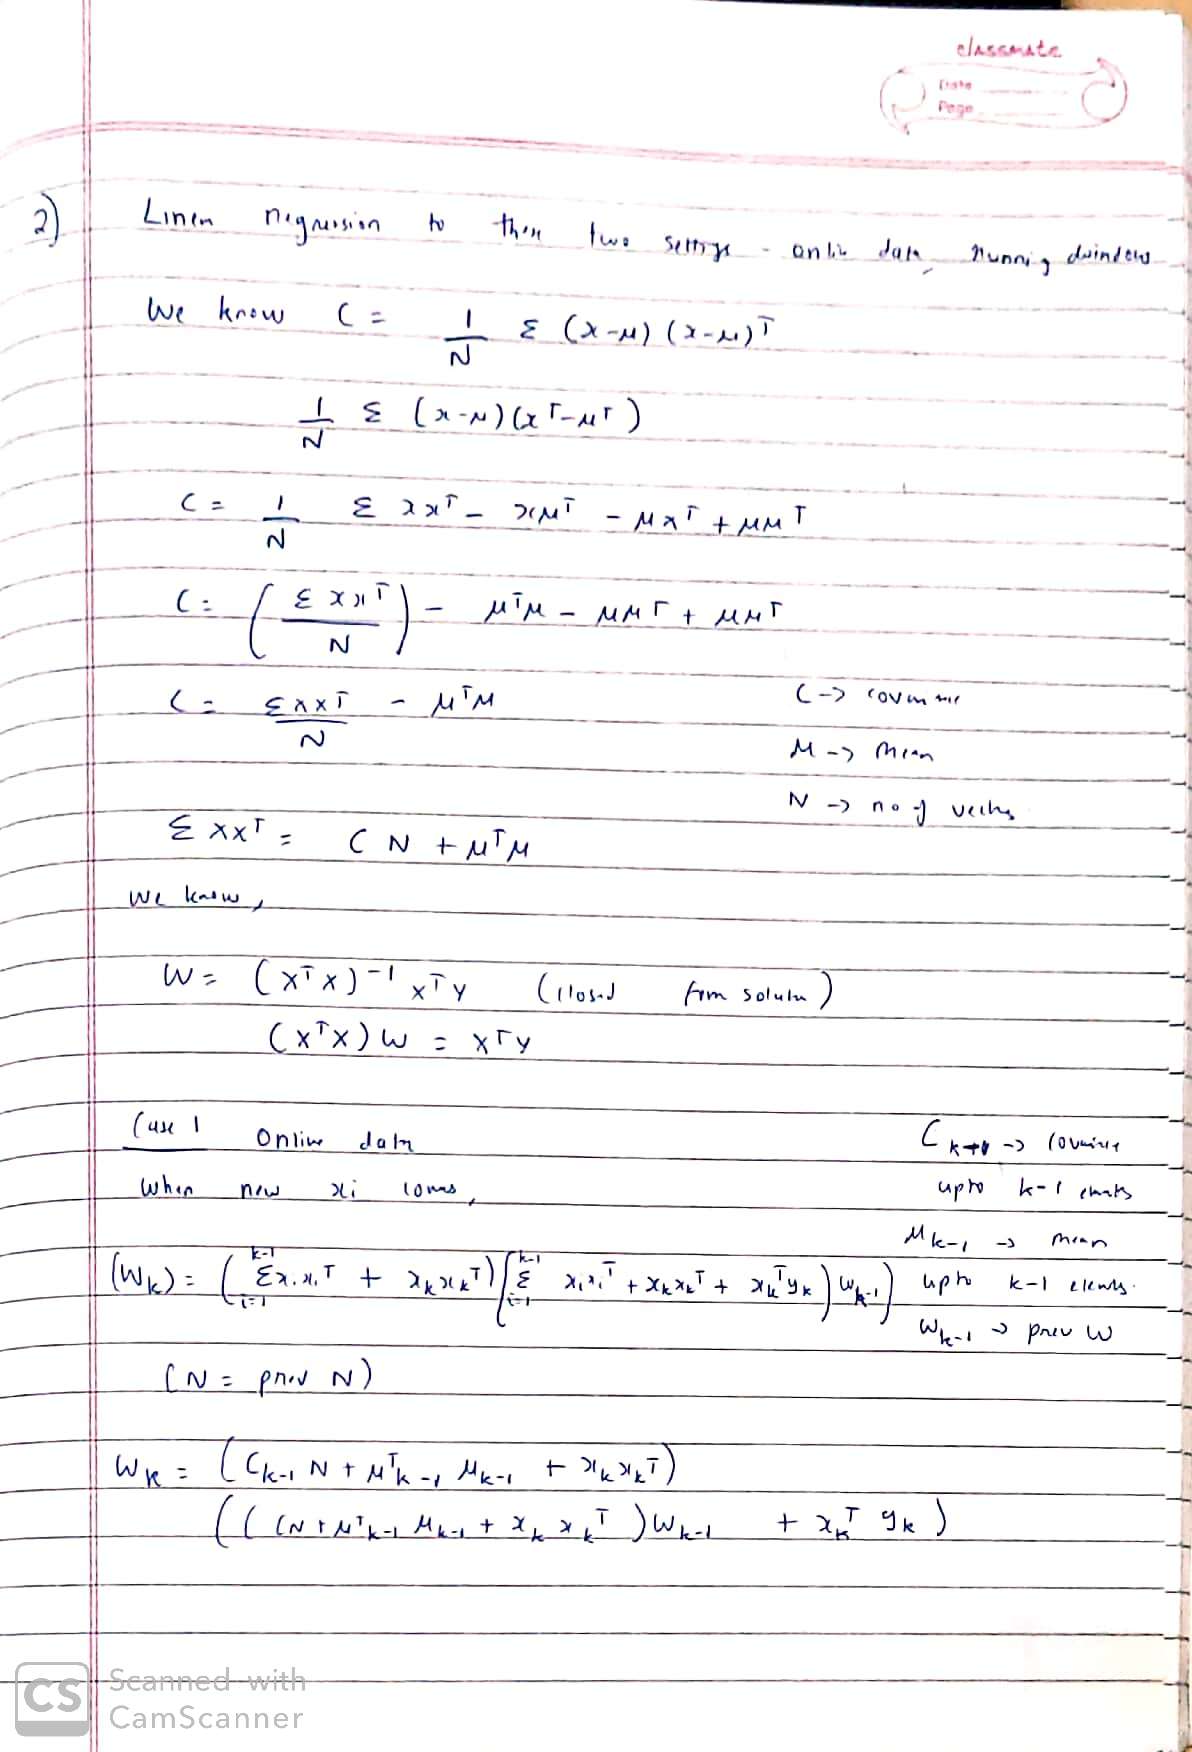 classmate
Date
Page
2) Linear regression to these two settings - online data, running window
We know C = 1/N Σ (x-μ) (x-μ)ᵀ
1/N Σ (x-μ)(xᵀ-μᵀ)
C = 1/N Σ xxᵀ - xμᵀ - μxᵀ + μμᵀ
C = (Σxxᵀ/N) - μᵀμ - μμᵀ + μμᵀ
C = Σxxᵀ/N - μᵀμ
C -> covariance
μ -> mean
N -> no of vectors
Σxxᵀ = CN + μᵀμ
We know,
W = (XᵀX)⁻¹ XᵀY (closed form solution)
(XᵀX)W = XᵀY
Case 1 Online data
C k-1 -> covariance
When new xi comes,
upto k-1 elements
μk-1 -> mean
(Wk) = (Σ_{i=1}^{k-1} xᵢxᵢᵀ + xₖxₖᵀ)(Σ_{i=1}^{k-1} xᵢxᵢᵀ + xₖxₖᵀ + xₖᵀyₖ) Wk-1) upto k-1 elements.
Wk-1 -> prev W
(N = prev N)
Wk = (Ck-1 N + μᵀk-1 μk-1 + xₖxₖᵀ)
(((CN + μᵀk-1 μk-1 + xₖxₖᵀ)Wk-1 + xₖᵀ yₖ)
CS Scanned with
CamScanner